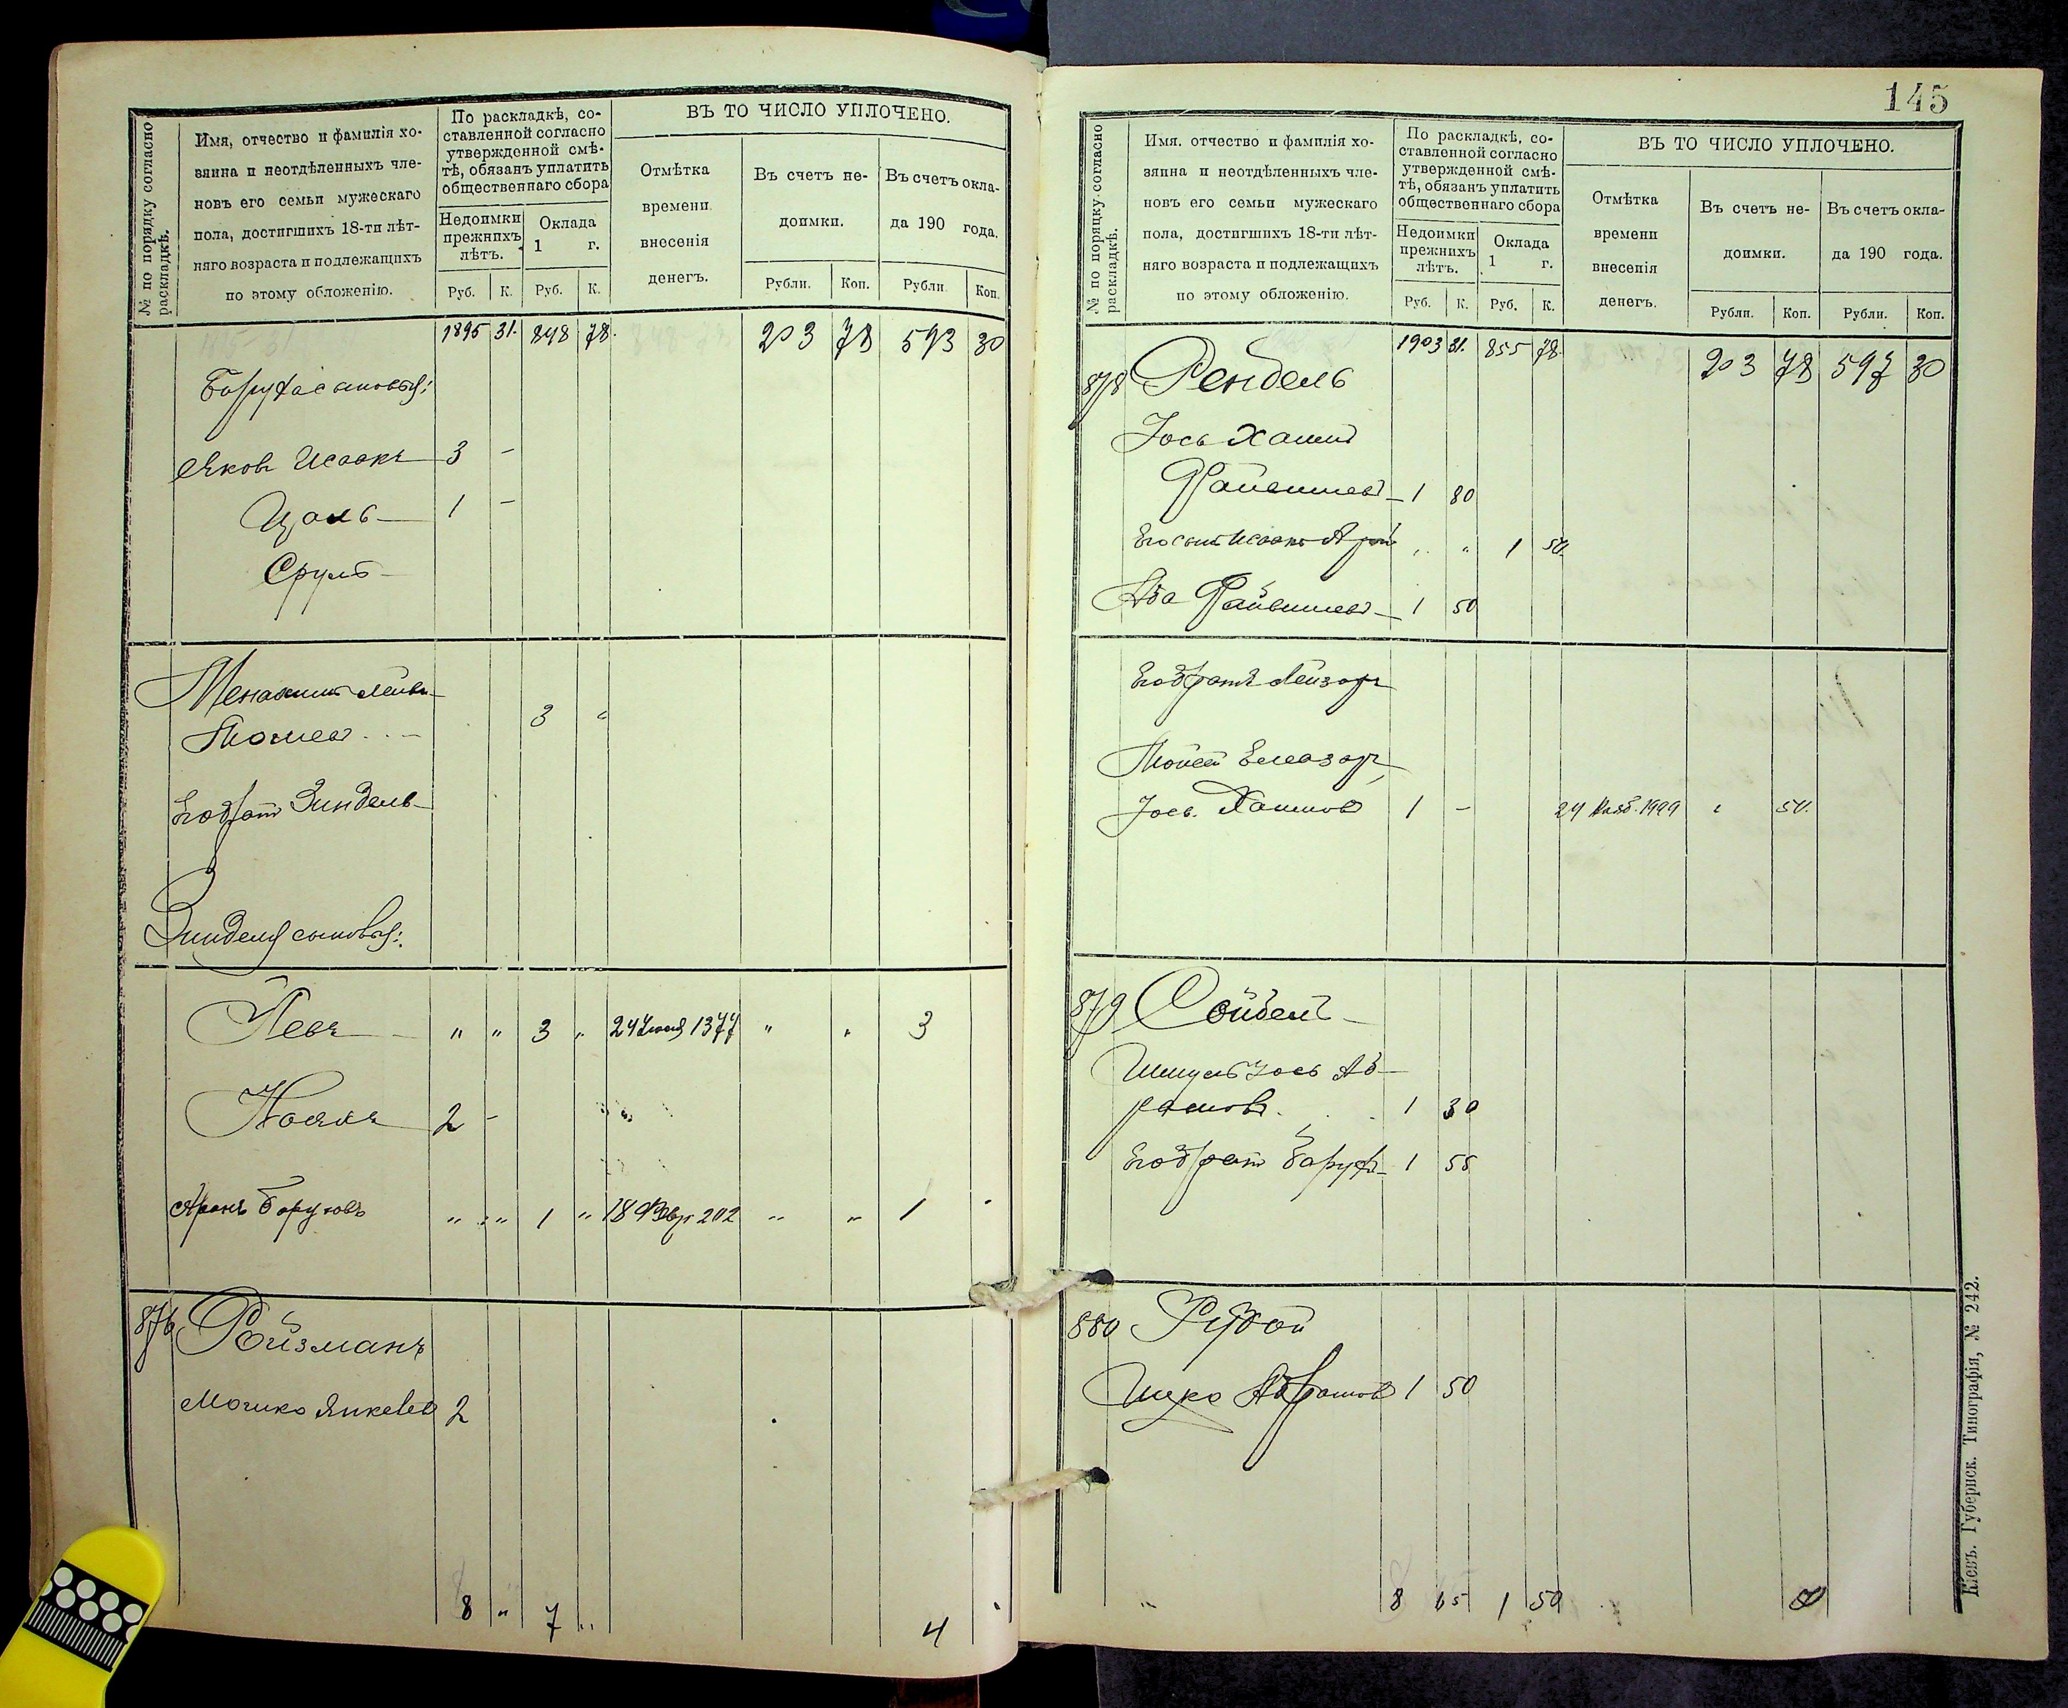 № по порядку согласно раскладкѣ.
Имя, отчество и фамилія хо-
зяина и неотдѣленныхъ чле-
новъ его семьи мужескаго
пола, достигшихъ 18-ти лѣт-
няго возраста и подлежащихъ
по этому обложенію.
По раскладкѣ, со-
ставленной согласно
утвержденной смѣ-
тѣ, обязанъ уплатить
общественнаго сбора
Недоимки
прежнихъ
лѣтъ.
Оклада
1 г.
Руб. К. Руб. К.
ВЪ ТО ЧИСЛО УПЛОЧЕНО.
Отмѣтка
времени
внесенія
денегъ.
Въ счетъ не-
доимки.
Въ счетъ окла-
да 190 года.
Рубли. Коп. Рубли. Коп.
1895 31. 848 78. 203 78 593 30
Боруха сыновья:
Яковъ Исаакъ 3 -
1 -
Сруль
3 "
Его братъ Зиндель
Зинделя сыновья:
Левъ " " 3 " 24 1377 " " 3
2 -
Аронъ Боруховъ " " 1 " 18 Февр 202 " " 1
876 Ройзманъ
Мошко Янкелев 2
8 " 7 " 4
145
№ по порядку согласно раскладкѣ.
Имя. отчество и фамилія хо-
зяина и неотдѣленныхъ чле-
новъ его семьи мужескаго
пола, достигшихъ 18-ти лѣт-
няго возраста и подлежащихъ
по этому обложенію.
По раскладкѣ, со-
ставленной согласно
утвержденной смѣ-
тѣ, обязанъ уплатить
общественнаго сбора
Недоимки
прежнихъ
лѣтъ.
Оклада
1 г.
Руб. К. Руб. К.
ВЪ ТО ЧИСЛО УПЛОЧЕНО.
Отмѣтка
времени
внесенія
денегъ.
Въ счетъ не-
доимки.
Въ счетъ окла-
да 190 года.
Рубли. Коп. Рубли. Коп.
1903 31. 855 78. 203 78 597 30
878 Рендель
Іось Хаим
Файвишев 1 80
Его сын Исаакъ " " 1 50.
Аба Файвишев 1 50
Его братъ Лейзоръ
Мойсей Елеазаръ
Іось Хаимов 1 - 24 1999 " 50.
879
Шмуль Іось Аб-
рамовъ. 1 30
Его братъ Борухъ 1 55
880 Рудой
Ицко Абрамов 1 50
8 65 1 50 50
Кіевъ. Губернск. Типографія, № 242.